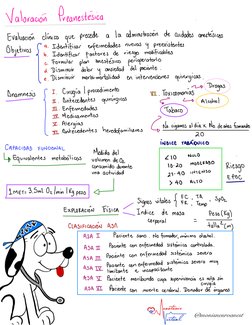 Valoración Preanestésica
Evaluación clínica que precede a la administración de cuidados anestésicos
Objetivos
a. Identificar enfermedades nuevas y preexistentes
b. Identificar factores de riesgo modificables
c. Formular plan anestésico perioperatorio
d. Disminuir dolor y ansiedad del paciente
e. Disminuir morbimortalidad en intervenciones quirúrgicas
Anamnesis
I. Cirugía / procedimiento
II. Antecedentes quirúrgicos
III. Enfermedades
IV. Medicamentos
V. Alergias
VI. Antecedentes heredofamiliares
VII. Toxicomanías
Drogas
Alcohol
Tabaco
No. cigarros al día x No. de años fumando
20
ÍNDICE TABÁQUICO
<10 NULO
10-20 MODERADO
21-40 INTENSO
>40 ALTO
Riesgo
EPOC
CAPACIDAD FUNCIONAL
Equivalentes metabólicos
Medida del
volumen de O2
consumido durante
una actividad
1 MET: 3.5 ml O2/min/Kg peso
EXPLORACIÓN FÍSICA
Signos vitales
FC, TA, SpO2
FR, Temp
Índice de masa
Corporal
Peso (Kg)
Talla² (m)
CLASIFICACIÓN ASA
ASA I Paciente sano. No fumador, mínimo alcohol.
ASA II Paciente con enfermedad sistémica controlada.
ASA III Paciente con enfermedad sistémica severa
ASA IV Paciente con enfermedad sistémica severa muy
limitante e incapacitante
ASA V Paciente moribundo cuya supervivencia es sólo sin
cirugía
ASA VI Paciente con muerte cerebral. Donador de órganos